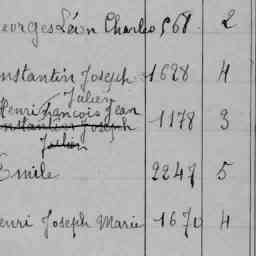 Georges Léon Charles 568. 2
onstantin Joseph 1628 4
Julien
Henri François Jean 1178 3
onstantin Joseph
Julien
Emile 2247 5
enri Joseph Marie 1670 4